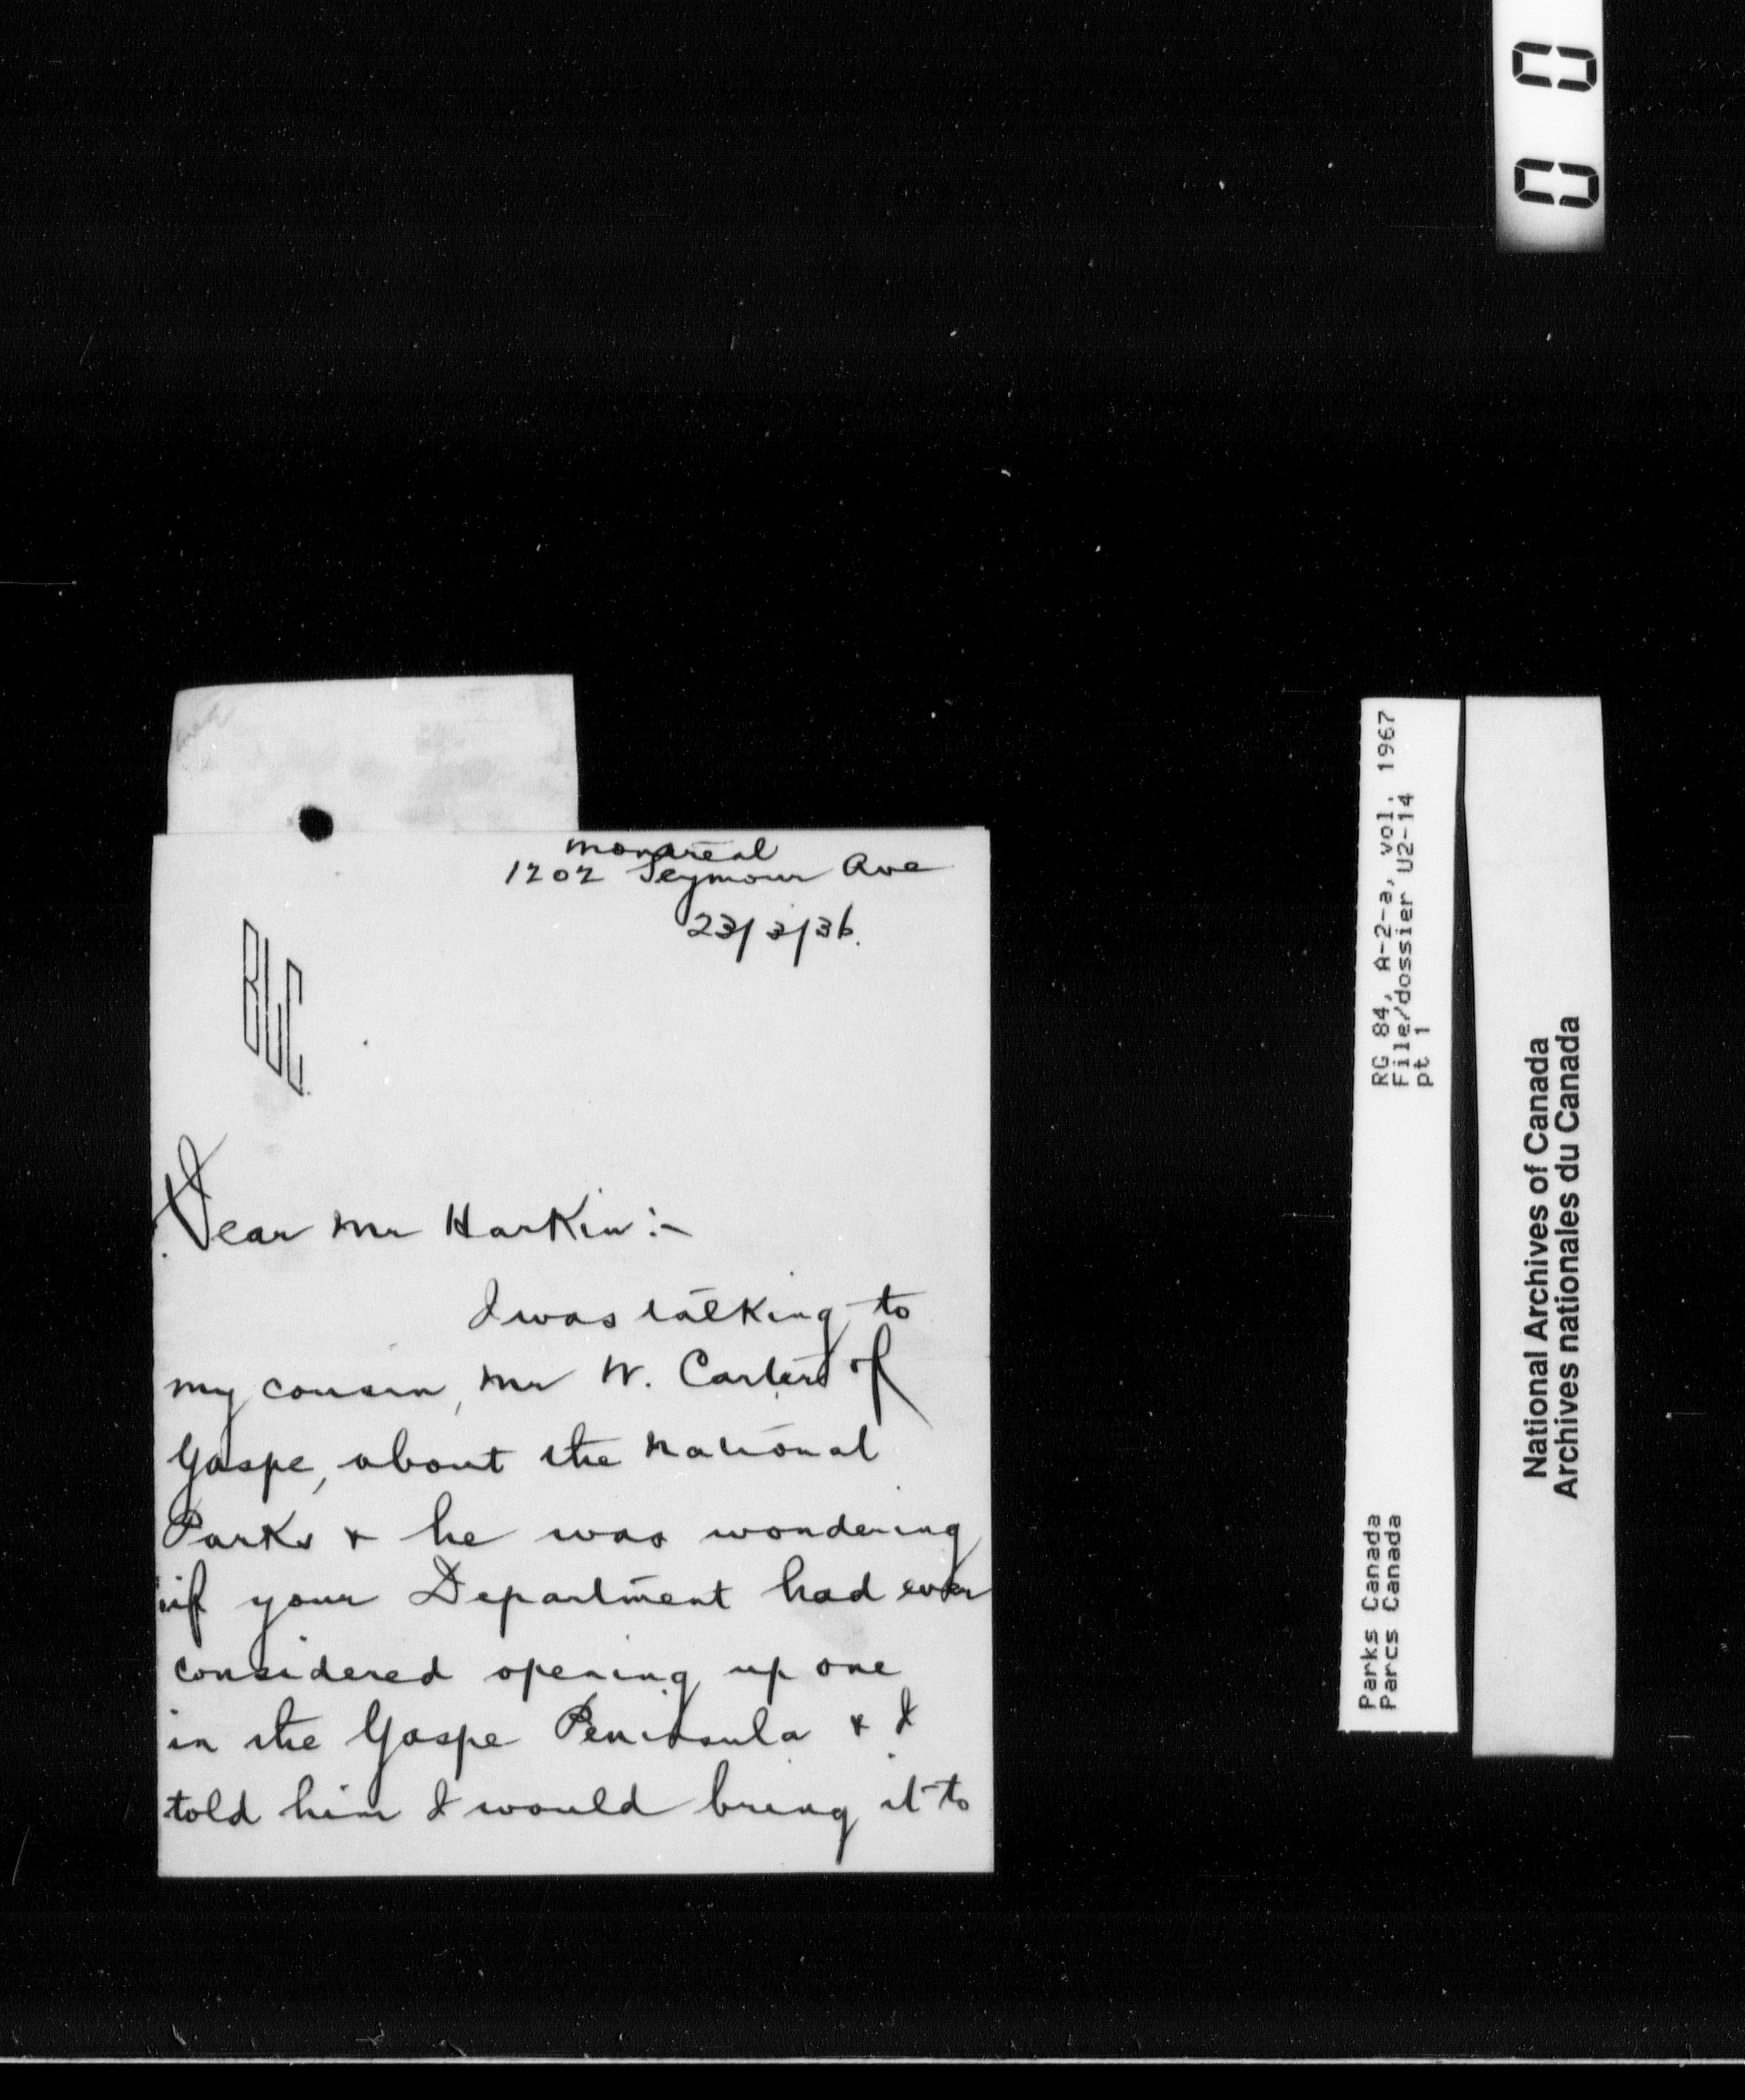 Montreal
1202 Seymour Ave
23/3/36.
RWC
Dear Mr Harkin:-
I was talking to
my cousin, Mr W. Carter of
Gaspe, about the National
Parks & he was wondering
if your Department had ever
considered opening up one
in the Gaspe Peninsula & I
told him I would bring it to
RG 84, A-2-a, vol. 1967
File/dossier U2-14
pt 1
Parks Canada
Parcs Canada
National Archives of Canada
Archives nationales du Canada
00